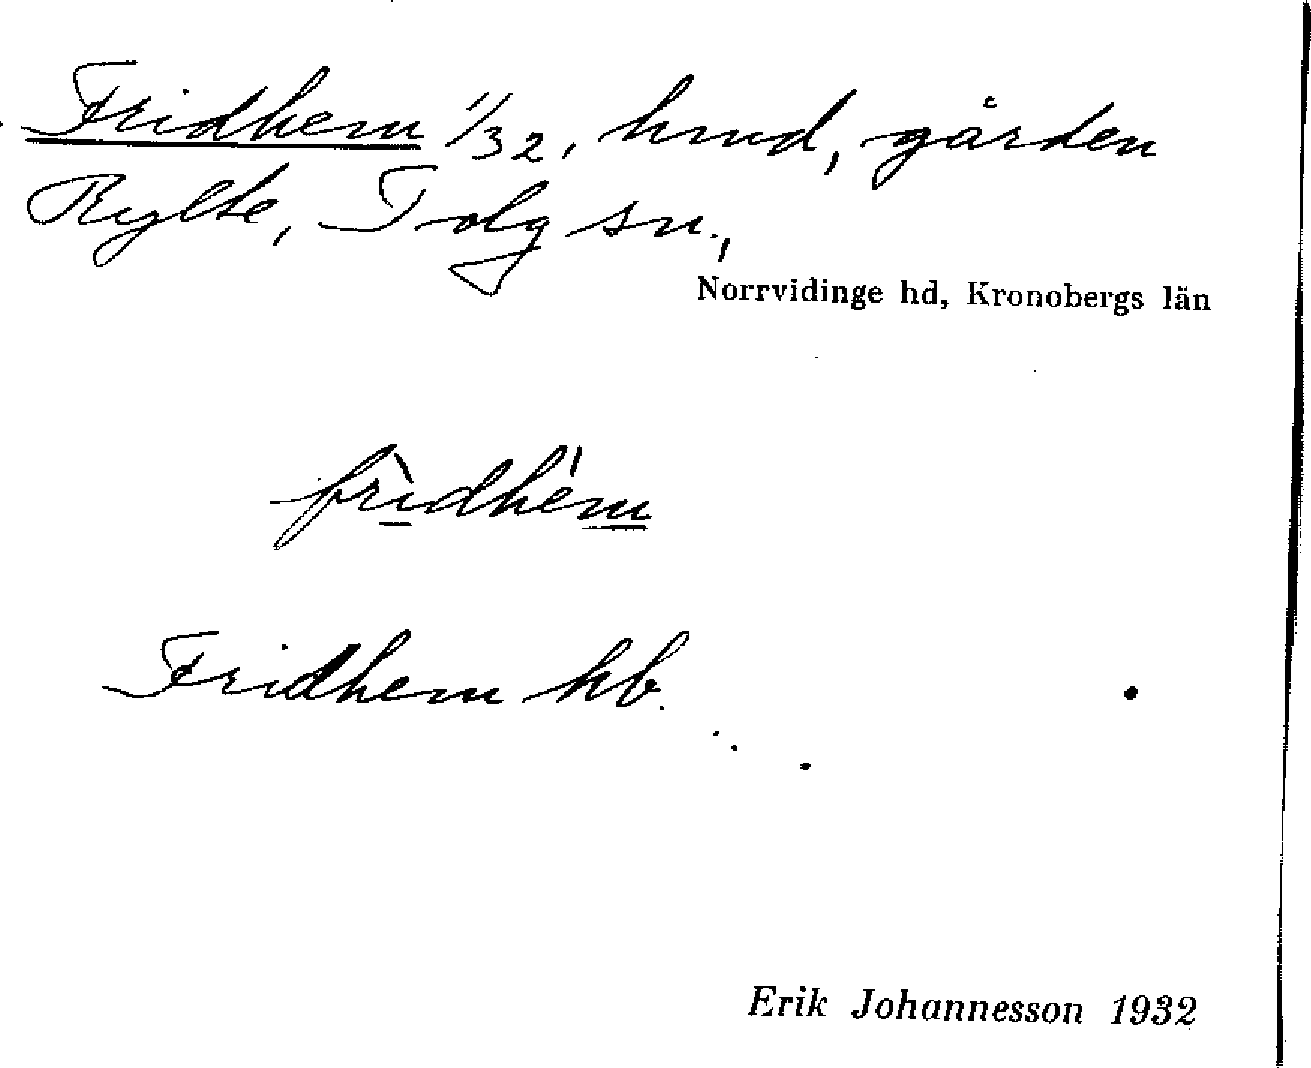 Fridhem 1/32, hmd, gården
Rylte, Tolg sn.,
Norrvidinge hd, Kronobergs län
frìdhém
Fridhem kb.
Erik Johannesson 1932